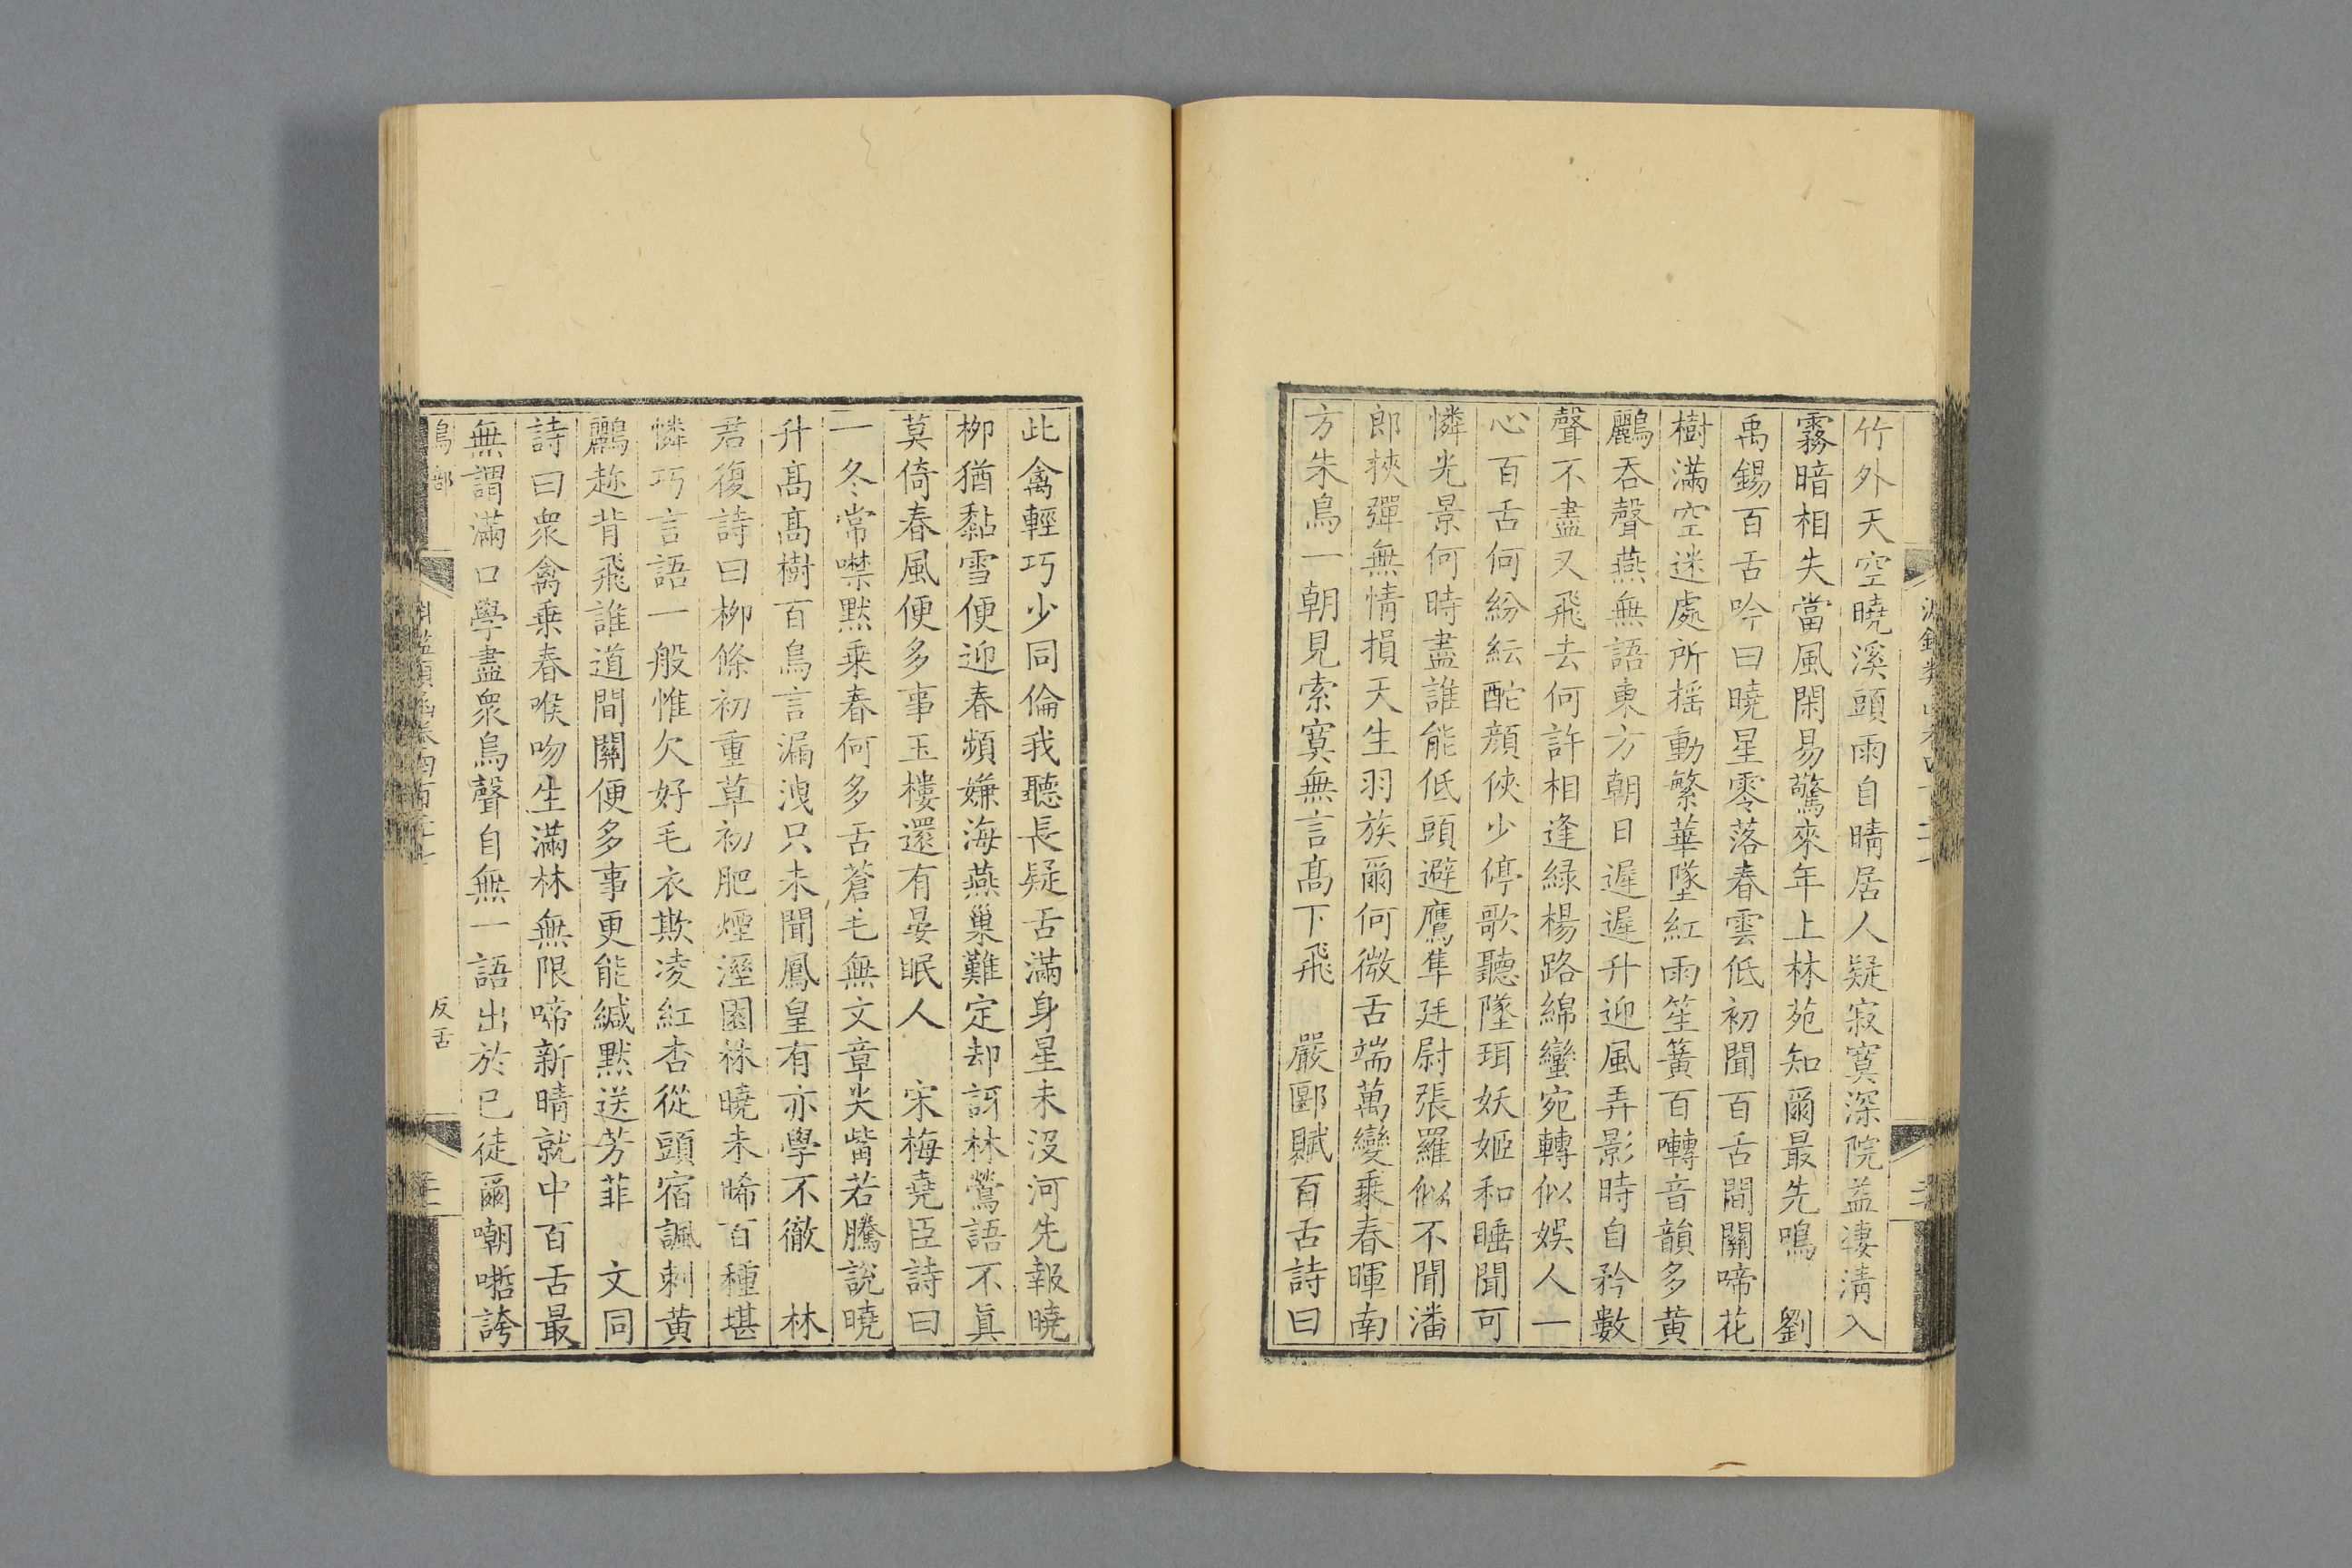 竹外天空曉溪頭雨自晴居人疑寂寞深院益淒清入
霧暗相失當風閑易驚來年上林苑知爾最先鳴　劉
禹錫百舌吟曰曉星零落春雲低初聞百舌間關啼花
樹滿空迷處所揺動繁華墜紅雨笙簧百囀音韻多黄
鸝吞聲燕無語東方朝日遲遲升迎風弄影時自矜數
聲不盡又飛去何許相逢緑楊路綿蠻宛轉似娱人一
心百舌何紛紜酡顔俠少停歌聽墜珥妖姬和睡聞可
憐光景何時盡誰能低頭避鷹隼廷尉張羅似不聞潘
郎挾彈無情損天生羽族爾何微舌端萬變乘春暉南
方朱鳥一朝見索寞無言髙下飛　嚴郾賦百舌詩曰
此禽輕巧少同倫我聽長疑舌滿身星未沒河先報曉
柳猶黏雪便迎春頻嫌海燕巢難定却訝林鶯語不真
莫倚春風便多事玉樓還有晏眠人　宋梅堯臣詩曰
一冬常噤黙乘春何多舌蒼毛無文章尖觜若騰說曉
升髙髙樹百鳥言漏洩只未聞鳳皇有亦學不徹　林
君復詩曰柳條初重草初肥煙溼園林曉未晞百種堪
憐巧言語一般惟欠好毛衣欺凌紅杏從頭宿諷刺黄
鸝趂背飛誰道間關便多事更能緘黙送芳菲　文同
詩曰衆禽乗春喉吻生滿林無限啼新晴就中百舌最
無謂滿口學盡衆鳥聲自無一語出於已徒爾嘲哳誇
鳥部
反舌